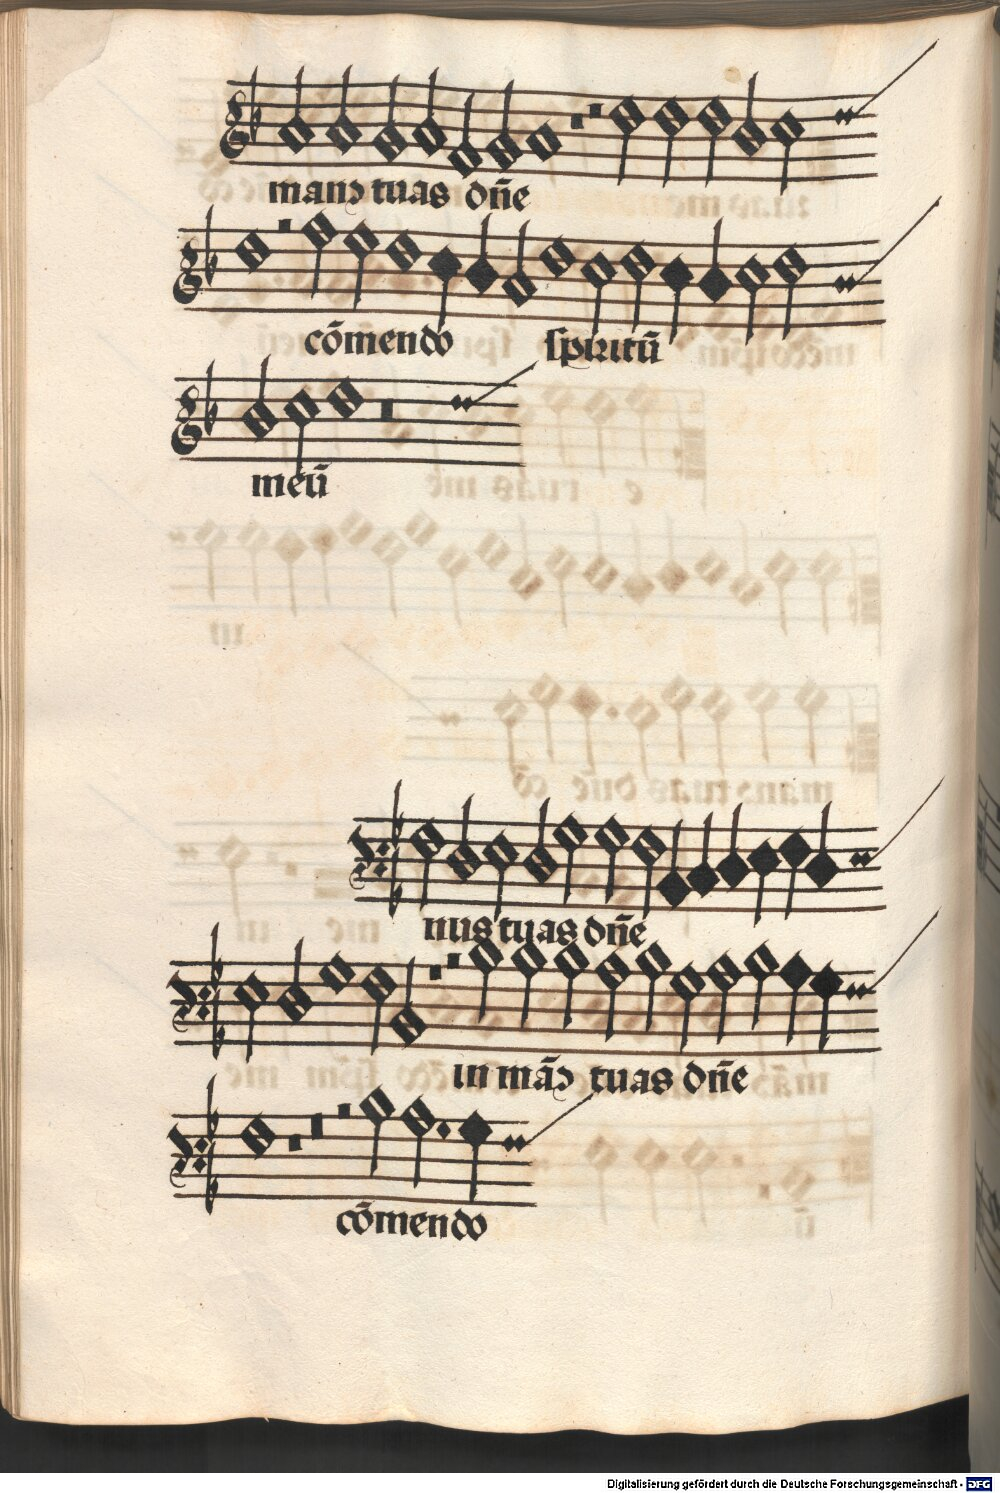 manꝰ tuas dn̄e
cōmendo spiritū
meū
nus tuas dn̄e
in māꝰ tuas dn̄e
cōmendo
Digitalisierung gefördert durch die Deutsche Forschungsgemeinschaft - DFG